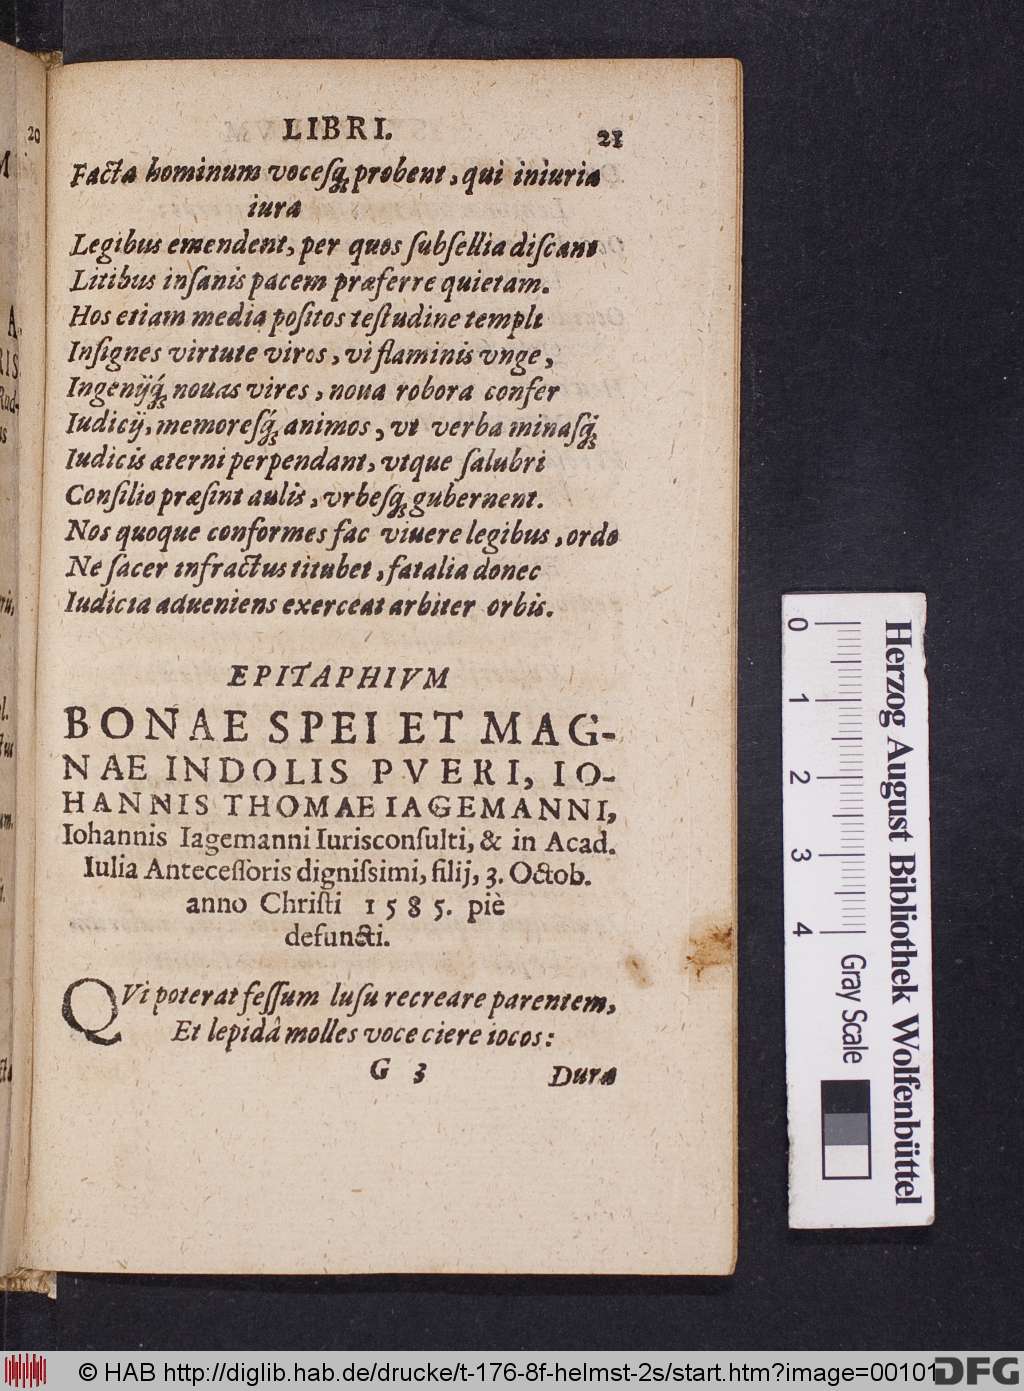 20
LIBRI. 21
Facta hominum vocesq́ꝫ probent, qui iniuria
iura
Legibus emendent, per quos ſubſellia diſcant
Litibus inſanis pacem præferre quietam.
Hos etiam media poſitos teſtudine templi
Inſignes virtute viros, vi flaminis vnge,
Ingenijq́ꝫ nouas vires, noua robora confer
Iudicij, memoreſq́ꝫ animos, vt verba minaſq́ꝫ
Iudicis æterni perpendant, vtque ſalubri
Conſilio præſint aulis, vrbeſqꝫ gubernent.
Nos quoque conformes fac viuere legibus, ordo
Ne ſacer infractus titubet, fatalia donec
Iudicia adueniens exerceat arbiter orbis.
EPITAPHIVM
BONAE SPEI ET MAG-
NAE INDOLIS PVERI, IO-
HANNIS THOMAE IAGEMANNI,
Iohannis Iagemanni Iurisconſulti, & in Acad.
Iulia Anteceſſoris digniſsimi, filij, 3. Octob.
anno Chriſti 1585. piè
defuncti.
QVi poterat feſſum luſu recreare parentem,
Et lepidâ molles voce ciere iocos:
G 3 Dura
Herzog August Bibliothek Wolfenbüttel
0 1 2 3 4 Gray Scale
© HAB http://diglib.hab.de/drucke/t-176-8f-helmst-2s/start.htm?image=00101
DFG